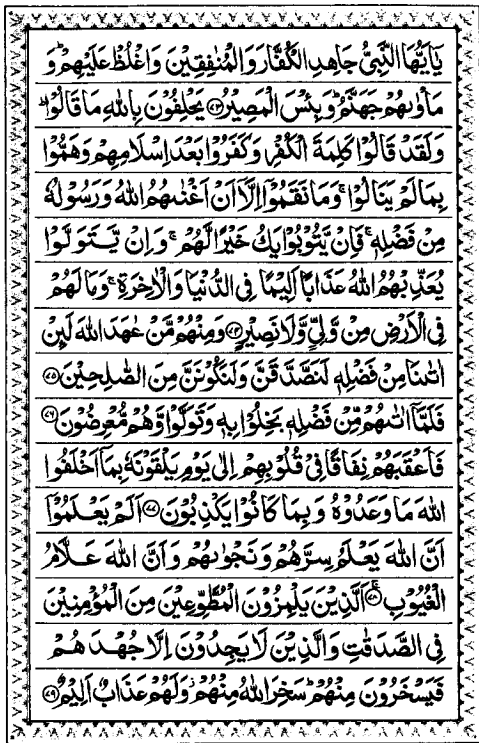 يٰۤاَيُّهَا النَّبِيُّ جَاهِدِ الْكُفَّارَ وَالْمُنٰفِقِيْنَ وَاغْلُظْ عَلَيْهِمْ ؕ وَ
مَاْوٰىهُمْ جَهَنَّمُ ؕ وَبِئْسَ الْمَصِيْرُ ﴿۷۳﴾ يَحْلِفُوْنَ بِاللّٰهِ مَا قَالُوْا ؕ
وَلَقَدْ قَالُوْا كَلِمَةَ الْكُفْرِ وَكَفَرُوْا بَعْدَ اِسْلَامِهِمْ وَهَمُّوْا
بِمَا لَمْ يَنَالُوْا ۚ وَمَا نَقَمُوْۤا اِلَّاۤ اَنْ اَغْنٰىهُمُ اللّٰهُ وَرَسُوْلُهٗ
مِنْ فَضْلِهٖ ۚ فَاِنْ يَّتُوْبُوْا يَكُ خَيْرًا لَّهُمْ ۚ وَاِنْ يَّتَوَلَّوْا
يُعَذِّبْهُمُ اللّٰهُ عَذَابًا اَلِيْمًا فِي الدُّنْيَا وَالْاٰخِرَةِ ۚ وَمَا لَهُمْ
فِي الْاَرْضِ مِنْ وَّلِيٍّ وَّلَا نَصِيْرٍ ﴿۷۴﴾ وَمِنْهُمْ مَّنْ عٰهَدَ اللّٰهَ لَىِٕنْ
اٰتٰىنَا مِنْ فَضْلِهٖ لَنَصَّدَّقَنَّ وَلَنَكُوْنَنَّ مِنَ الصّٰلِحِيْنَ ﴿۷۵﴾
فَلَمَّاۤ اٰتٰىهُمْ مِّنْ فَضْلِهٖ بَخِلُوْا بِهٖ وَتَوَلَّوْا وَّهُمْ مُّعْرِضُوْنَ ﴿۷۶﴾
فَاَعْقَبَهُمْ نِفَاقًا فِيْ قُلُوْبِهِمْ اِلٰى يَوْمِ يَلْقَوْنَهٗ بِمَاۤ اَخْلَفُوا
اللّٰهَ مَا وَعَدُوْهُ وَبِمَا كَانُوْا يَكْذِبُوْنَ ﴿۷۷﴾ اَلَمْ يَعْلَمُوْۤا
اَنَّ اللّٰهَ يَعْلَمُ سِرَّهُمْ وَنَجْوٰىهُمْ وَاَنَّ اللّٰهَ عَلَّامُ
الْغُيُوْبِ ﴿۷۸﴾ اَلَّذِيْنَ يَلْمِزُوْنَ الْمُطَّوِّعِيْنَ مِنَ الْمُؤْمِنِيْنَ
فِي الصَّدَقٰتِ وَالَّذِيْنَ لَا يَجِدُوْنَ اِلَّا جُهْدَهُمْ
فَيَسْخَرُوْنَ مِنْهُمْ ؕ سَخِرَ اللّٰهُ مِنْهُمْ ؗ وَلَهُمْ عَذَابٌ اَلِيْمٌ ﴿۷۹﴾